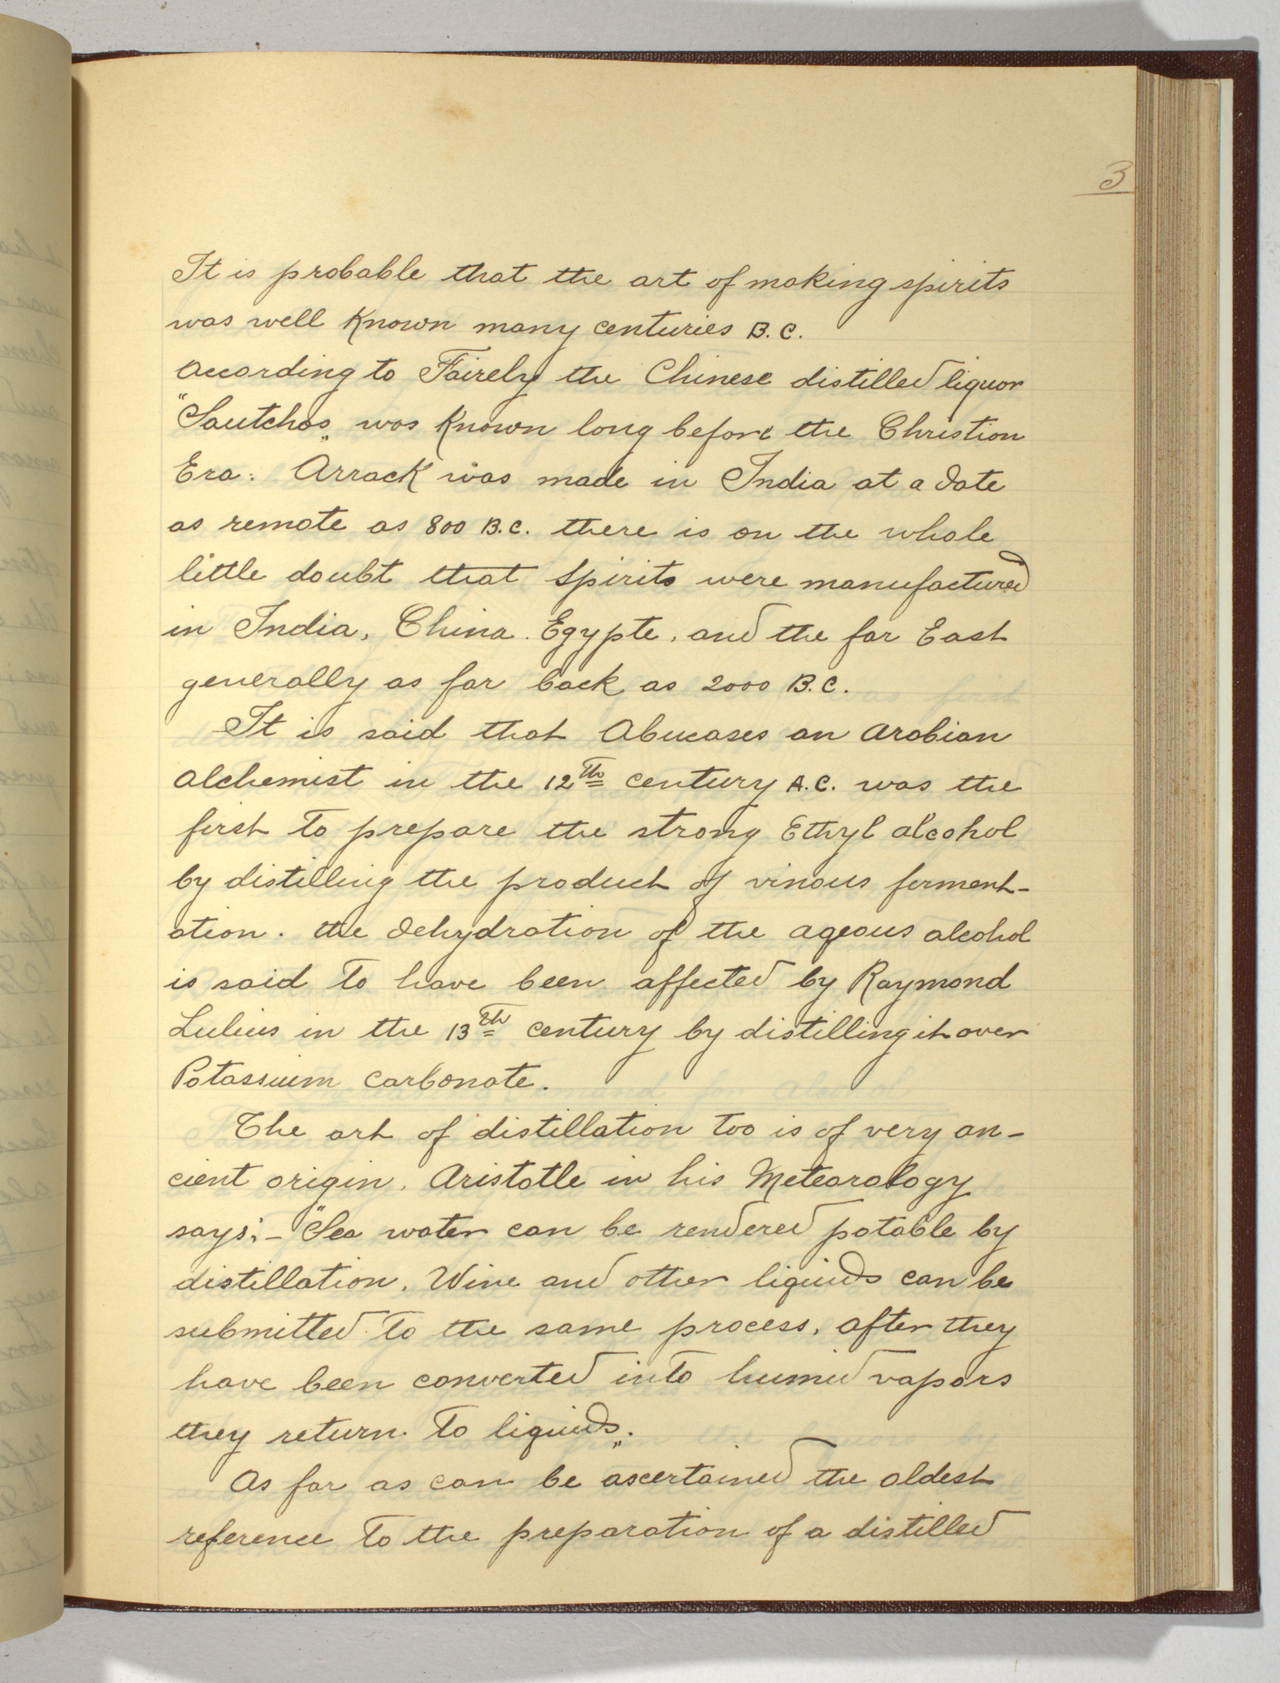 3
It is probable that the art of making spirits
was well known many centuries B.C.
According to Fairely the Chinese distilled liquor
"Sautchos„ was known long before the Christion
Era. Arrack was made in India at a date
as remote as 800 B.C. there is on the whole
little doubt that spirits were manufactured
in India, China. Egypte, and the far East
generally as far back as 2000 B.C.
It is said that Abucases an Arabian
alchemist in the 12th century A.C. was the
first to prepare the strong Ethyl alcohol
by distilling the product of vinous ferment-
ation. the dehydration of the aqeous alcohol
is said to have been affected by Raymond
Lulius in the 13th century by distilling it over
Potassium carbonate.
The art of distillation too is of very an-
cient origin. Aristotle in his Meteorology
says:- "Sea water can be rendered potable by
distillation, Wine and other liquids can be
submitted to the same process, after they
have been converted into humid vapors
they return to liquids„.
As far as can be ascertained the oldest
reference to the preparation of a distilled